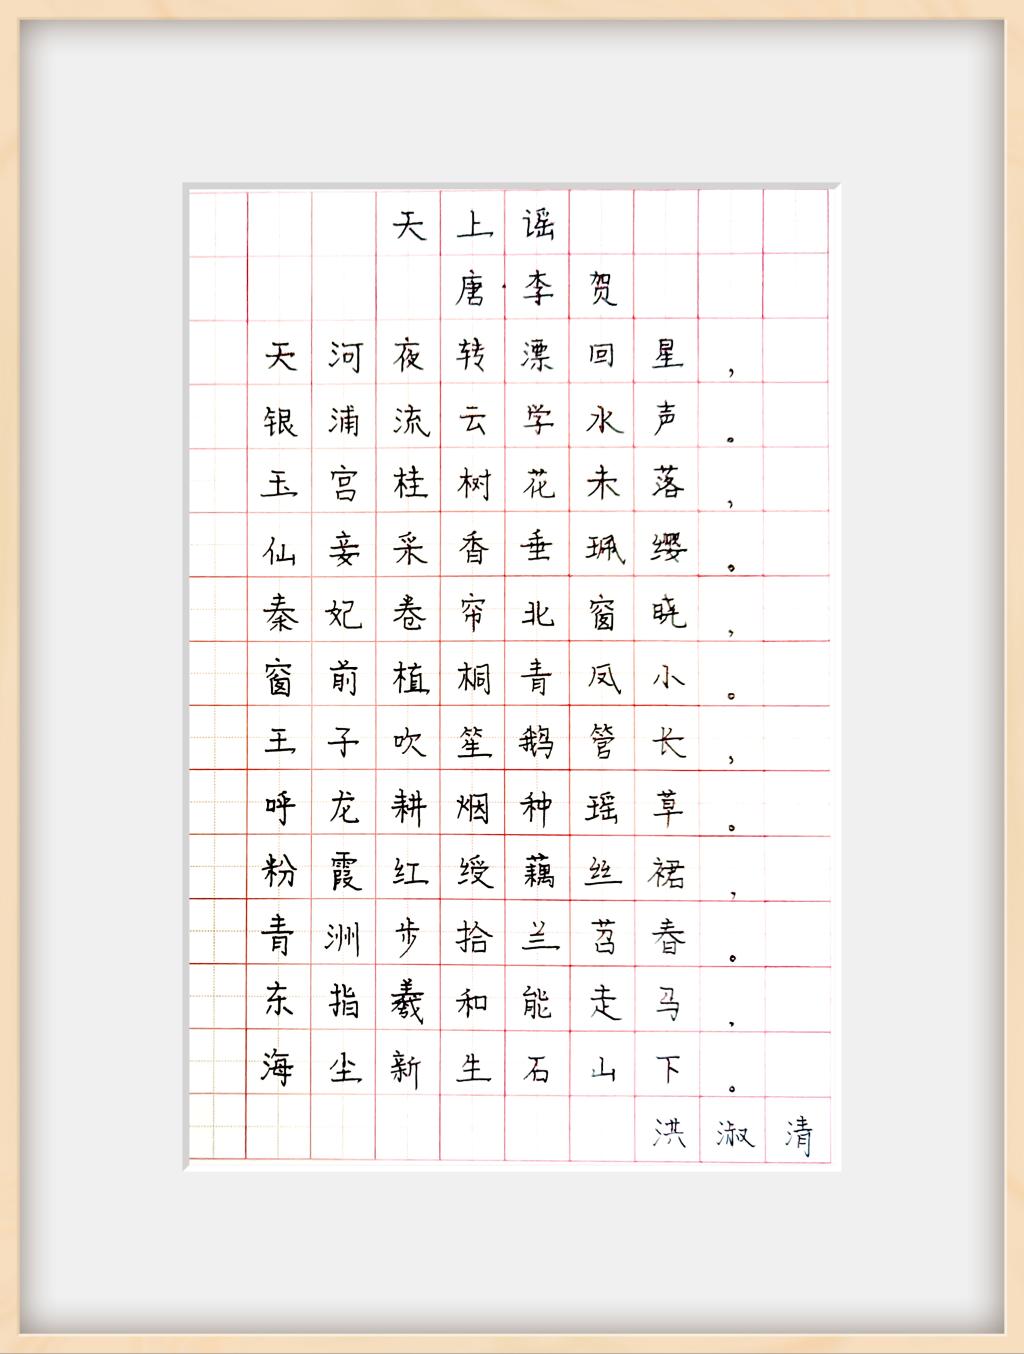 天上谣
唐·李贺
天河夜转漂回星，
银浦流云学水声。
玉宫桂树花未落，
仙妾采香垂珮缨。
秦妃卷帘北窗晓，
窗前植桐青凤小。
王子吹笙鹅管长，
呼龙耕烟种瑶草。
粉霞红绶藕丝裙，
青洲步拾兰苕春。
东指羲和能走马，
海尘新生石山下。
洪淑清